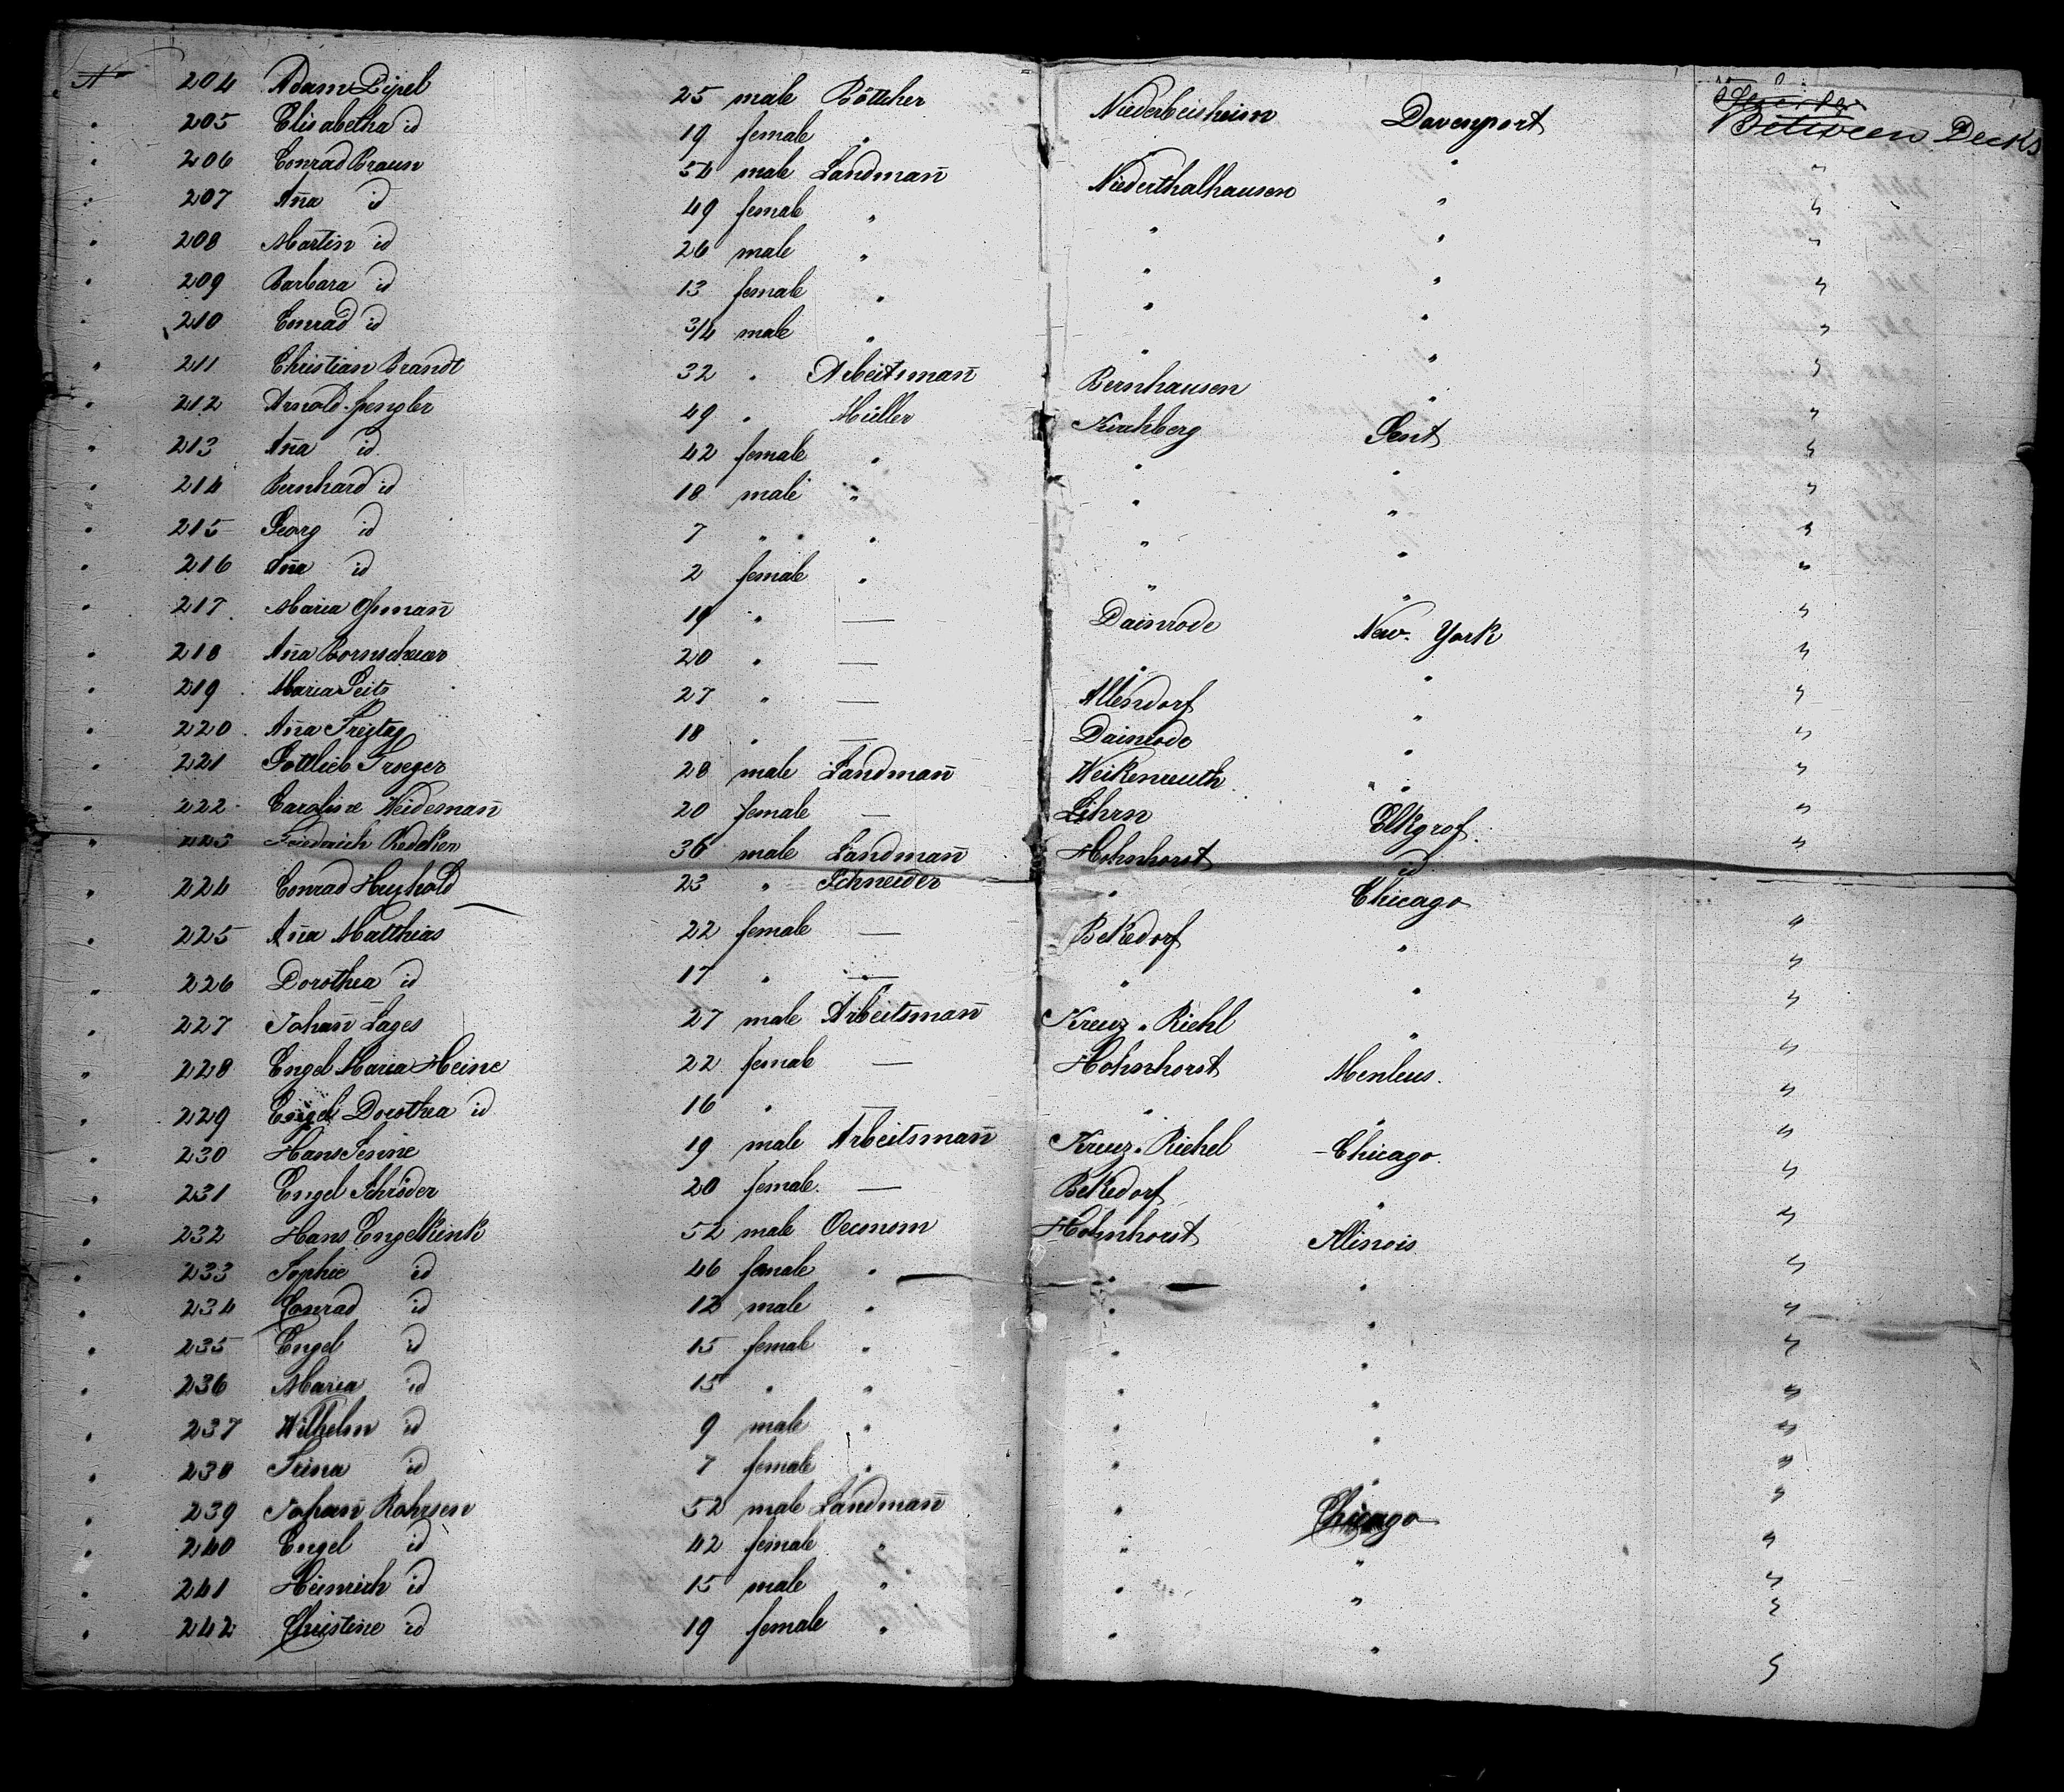 No 204 Adam Dippel 25 male Böttcher Niederbeisheim Davenport Between Decks
" 205 Elisabetha id 19 female " " " "
" 206 Conrad Braun 54 male Landmañ Niederthalhausen " "
" 207 Aña id 49 female " " " "
" 208 Martin id 26 male " " " "
" 209 Barbara id 13 female " " " "
" 210 Conrad id 3/4 male " " " "
" 211 Christian Brandt 32 " Arbeitsmañ Bernhausen " "
" 212 Arnold Spengler 49 " Müller Kirchberg Gent "
" 213 Aña id 42 female " " " "
" 214 Bernhard id 18 male " " " "
" 215 Georg id 7 " " " " "
" 216 Aña id 2 female " " " "
" 217 Maria 19 " — Dainrode New-York "
" 218 Aña Bornscheuer 20 " — " " "
" 219 Maria Seitz 27 " — Allendorf " "
" 220 Aña Freytag 18 " — Dainrode " "
" 221 Gottlieb Troeger 28 male Landmañ Weikenreuth " "
" 222 Caroline Weidemañ 20 female — Elkgrof "
" 223 Friedrich Redeker 36 male Landmañ Hohnhorst id "
" 224 Conrad 23 " Schneider " Chicago
" 225 Aña Matthias 22 female — Bekedorf " "
" 226 Dorothea id 17 " — " " "
" 227 Johañ Lages 27 male Arbeitsmañ Kreuz-Riehl " "
" 228 Engel Maria Heine 22 female — Hohnhorst "
" 229 Engel Dorothea id 16 " — " " "
" 230 Hans Senne 19 male Arbeitsmañ Kreuz-Riehel Chicago "
" 231 Engel Schröder 20 female — Bekedorf " "
" 232 Hans Engelkink 52 male Oeconom Hohnhorst Illinois "
" 233 Sophie id 46 female " " " "
" 234 Conrad id 12 male " " " "
" 235 Engel id 15 female " " " "
" 236 Maria id 15 " " " " "
" 237 Wilhelm id 9 male " " " "
" 238 Trina id 7 female " " " "
" 239 Johañ Rohrsen 52 male Landmañ " Chicago "
" 240 Engel id 42 female " " " "
" 241 Heinrich id 15 male " " " "
" 242 Christine id 19 female " " " "